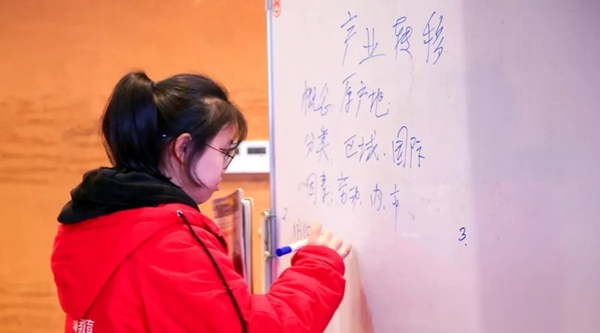 产业转移
概念 原产地
分类 区域、国际
因素 劳动、内、市
2
3.
教育